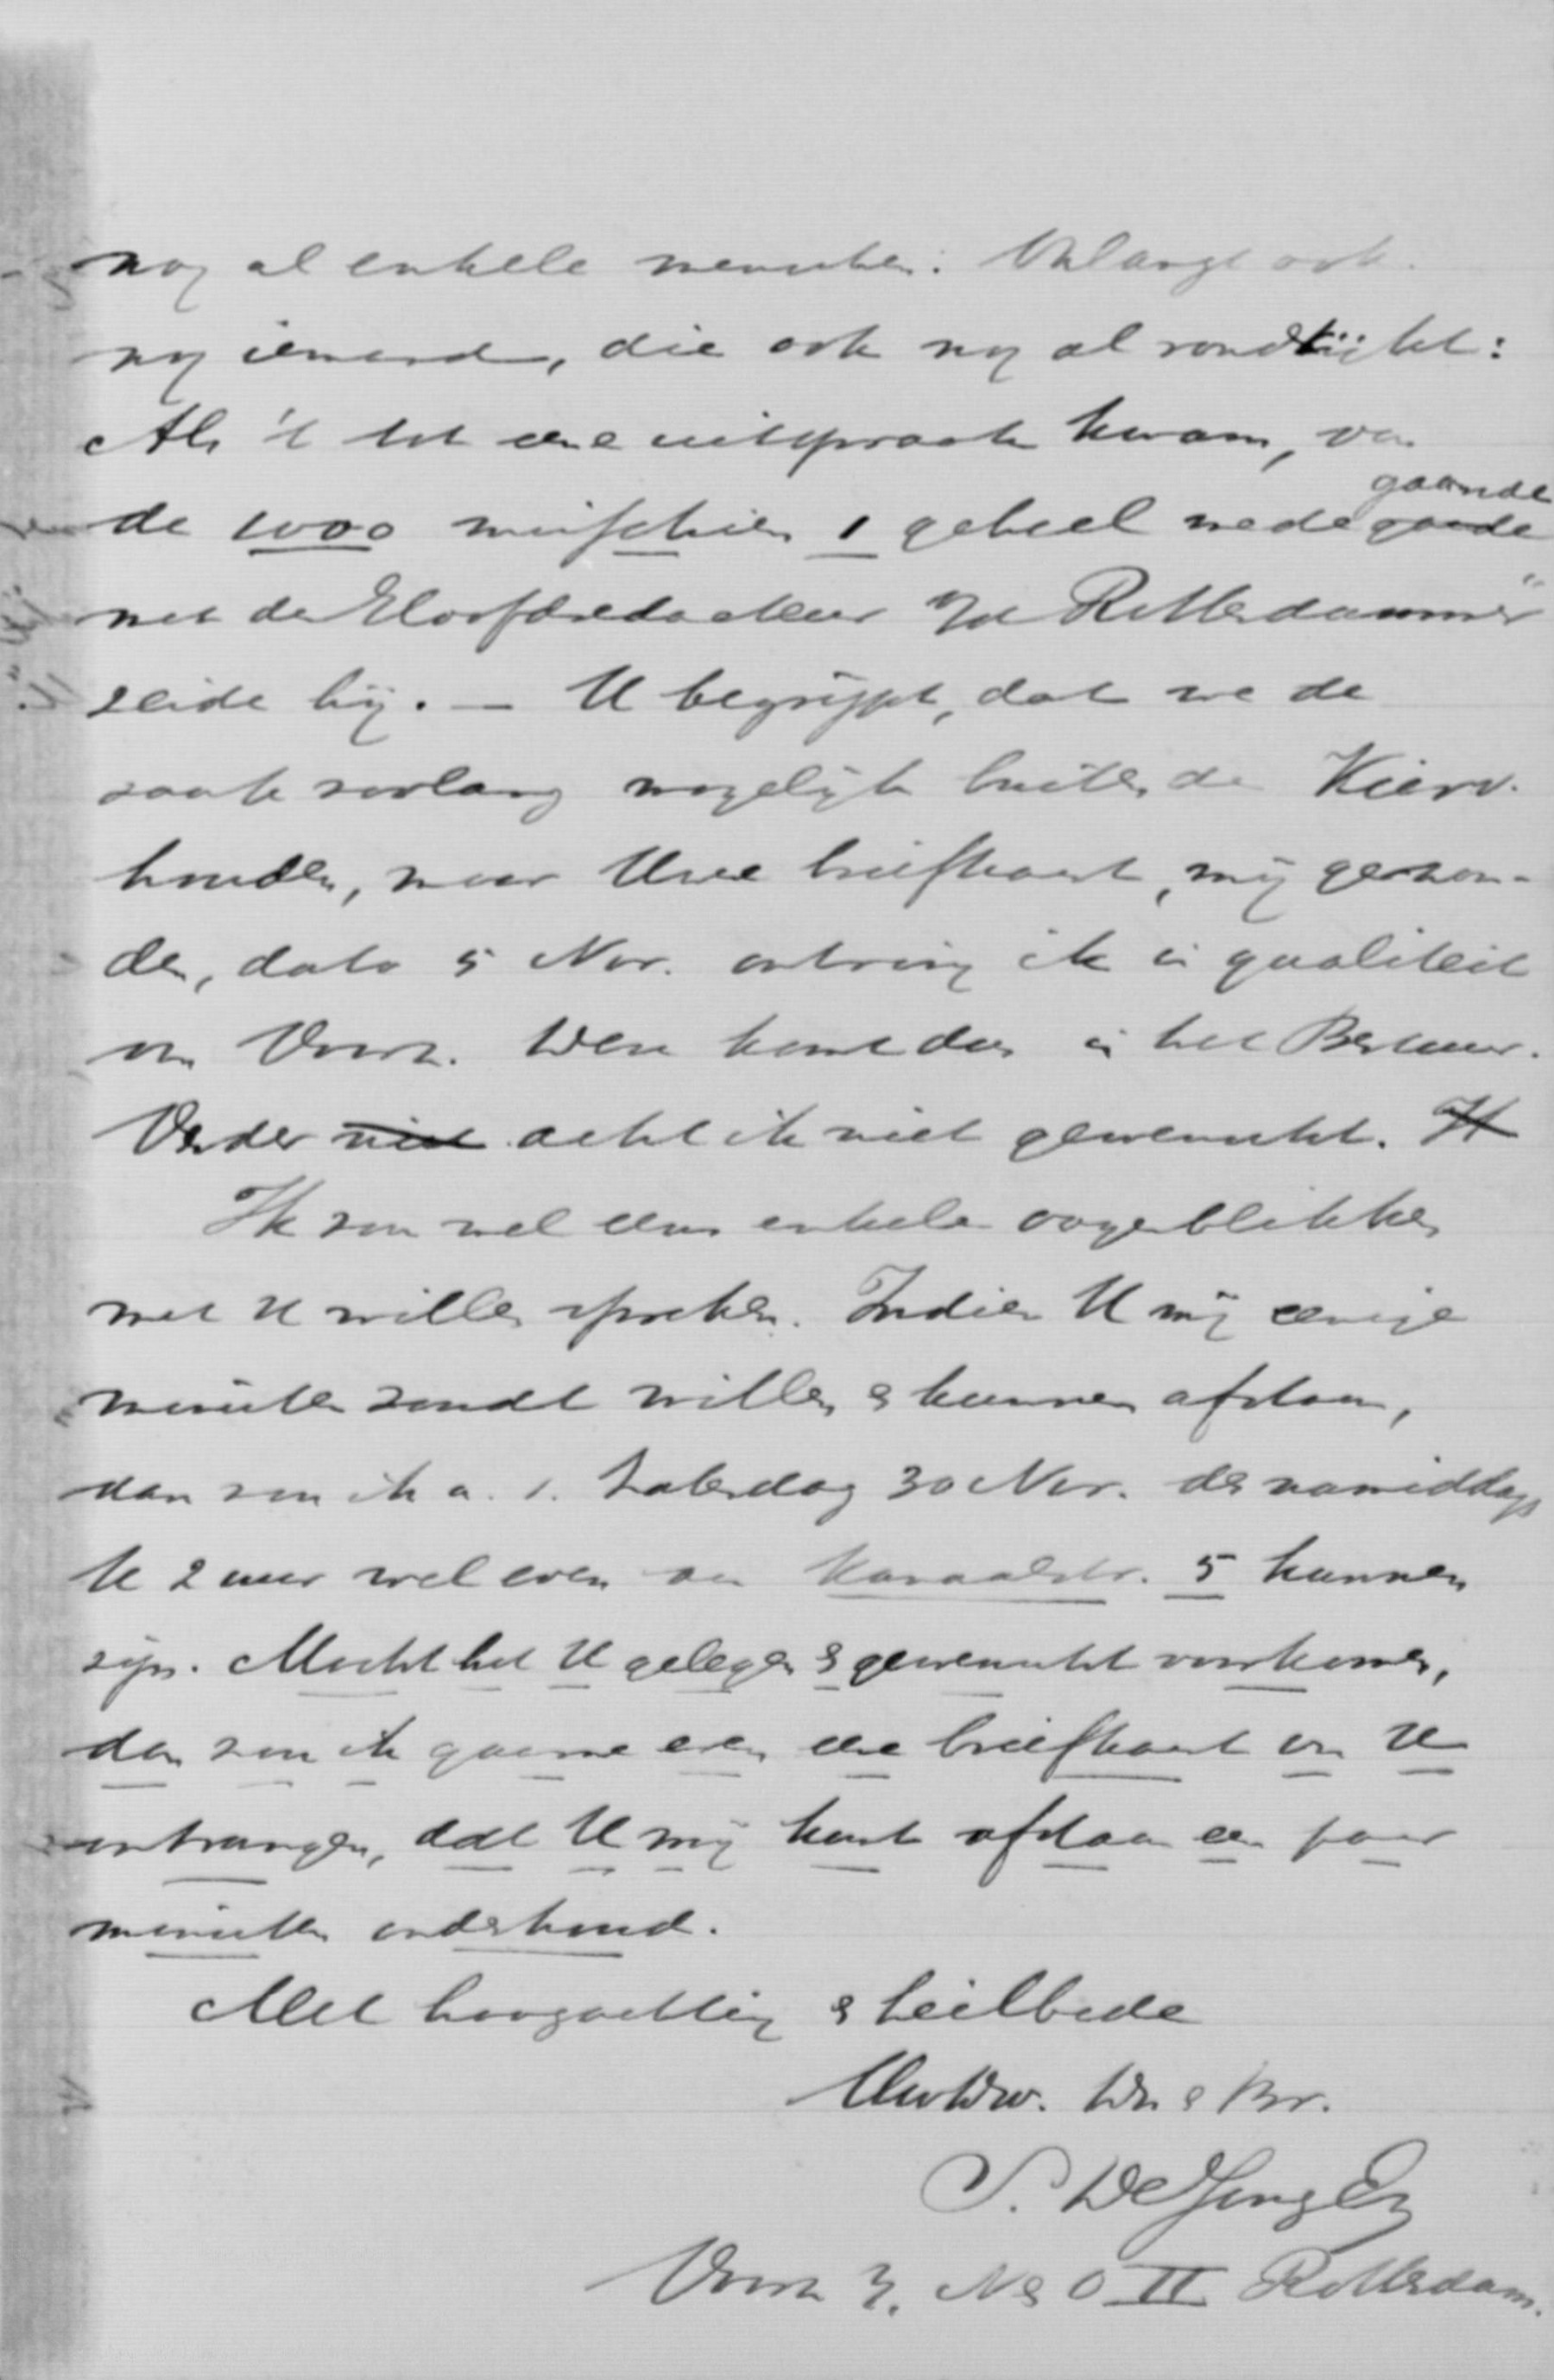 nog al enkele menschen. Onlangs ook
nog iemand, die ook nog al rondkijkt:
Als 't tot eene uitspraak kwam, van
de 1000 misschien 1 geheel medegaande gaande
met de Hoofdredacteur v/d Rotterdammer"
zeide hij. — U begrijpt, dat we de
zaak zoolang mogelijk buiten de Kiesv.
houden, maar Uwe briefkaart, mij gezon-
den, dato 5 Nov. ontving ik in qualiteit
van Voorz. Deze komt dus in het Bestuur.
Verder niet acht ik niet gewenscht. Ik
Ik zou wel eens enkele oogenblikken
met U willen spreken. Indien U mij eenige
minuten zoudt willen & kunnen afstaan,
dan zou ik a. s. Zaterdag 30 Nov. des namiddags
te 2 uur wel even aan Kanaalstr. 5 kunnen
zijn. Mocht het U gelegen & gewenscht voorkomen,
dan zou ik gaarne even eene briefkaart van U
ontvangen, dat U mij kunt afstaan een paar
minuten onderhoud.
Met hoogachting & heilbede
Uw Dw. Dr. & Br.
S. De Jong Ez
Voorz. N & O II Rotterdam.